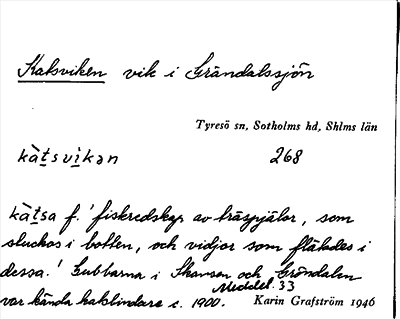 Katsviken vik i Grändalssjön
Tyresö sn, Sotholms hd, Shlms län
kàt̲svi̲kən 268
kàt̲sa f. 'fiskredskap av träspjälor, som
stuckos i botten, och vidjor som flätades i
dessa.' Gubbarna i Skansen och Gröndalen
Meddel. 33
var kända katslindare c. 1900. Karin Grafström 1946